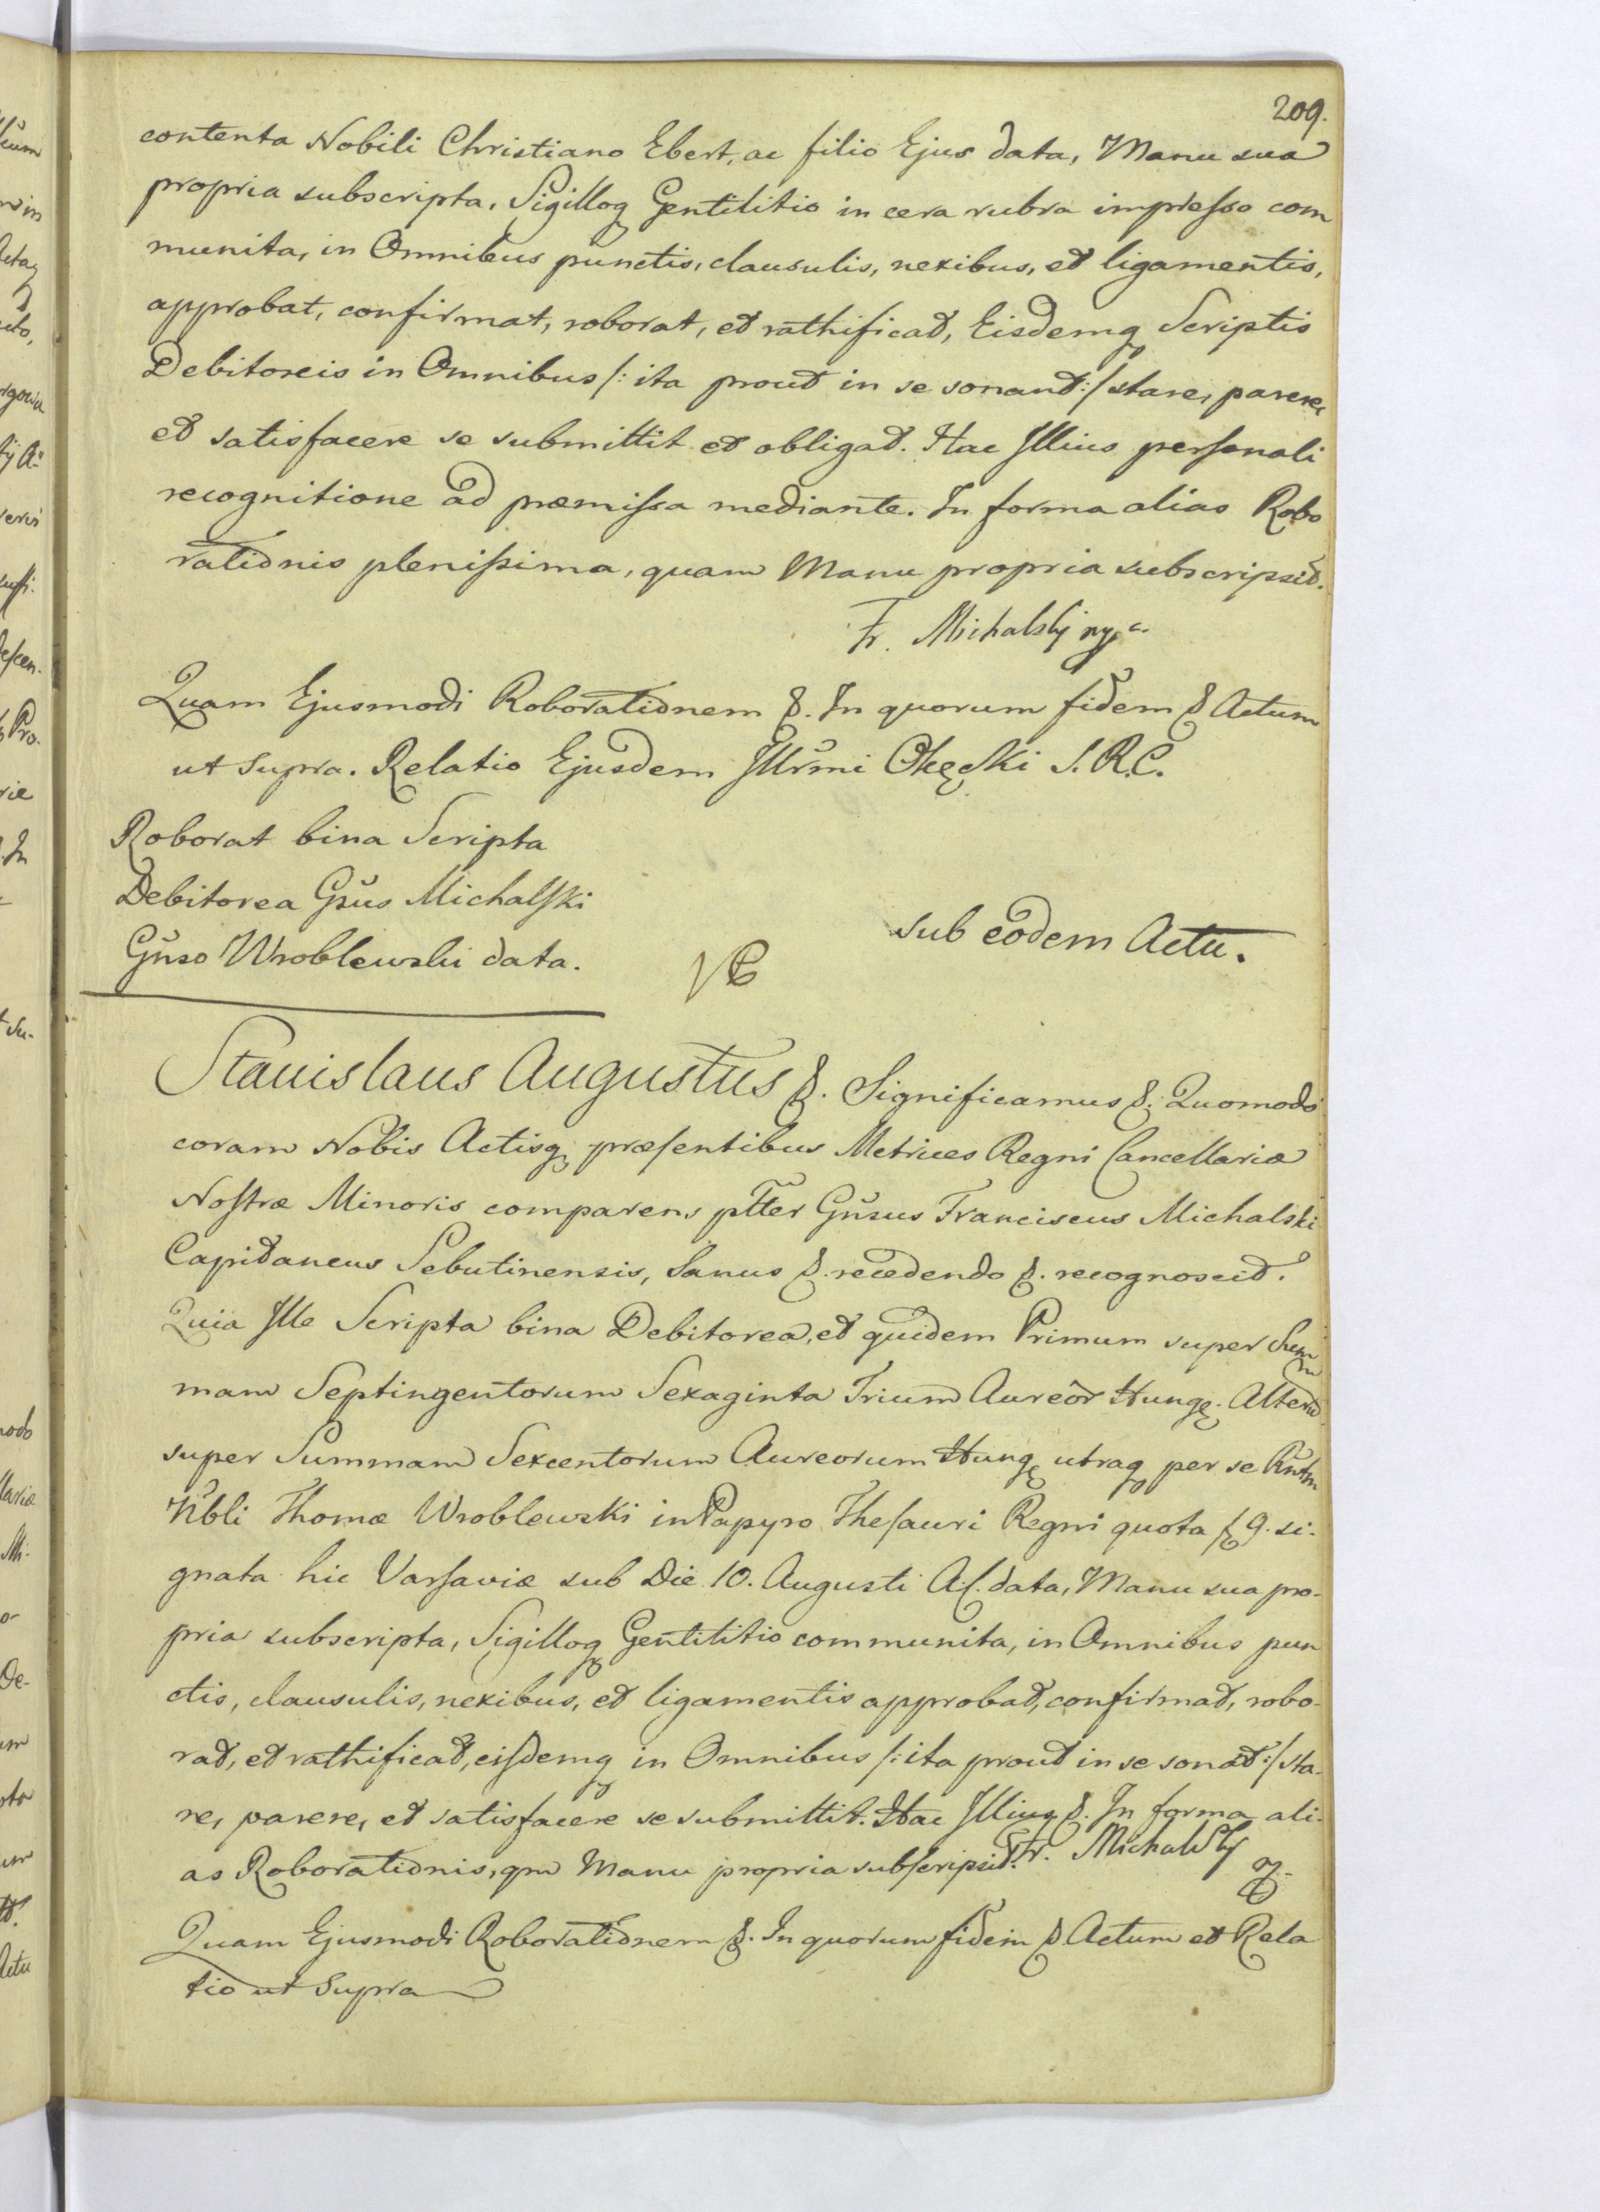 209.
contenta Nobili Christiano Ebert, ac filio Ejus data, Manu sua
propria subscripta, Sigilloq Gentilitio in cera rubra impresso com
munita, in Omnibus punctis, clausulis, nexibus, et ligamentis,
approbat, confirmat, roborat, et rathificat, Eisdemq Scriptis
Debitoreis in Omnibus /: ita prout in se sonant :/ stare, parere,
et satisfacere se submittit et obligat. Hac Illius personali
recognitione ad præmissa mediante. In forma alias Robo
rationis plenissima, quam Manu propria subscripsit.
Fr. Michalsky
Quam Ejusmodi Roborationem &. In quorum fidem & Actum
ut supra. Relatio Ejusdem Illrmi Okęcki S.R.C.
Roborat bina Scripta
Debitorea Gsus Michalski
Gnso Wroblewski data.
sub eodem Actu.
Stanislaus Augustus &. Significamus &. Quomodo
coram Nobis Actisq præsentibus Metrices Regni Cancellariæ
Nostræ Minoris comparens pltter Gnsus Franciscus Michalski
Capitaneus Sebutinensis, Sanus &. recedendo &. recognoscit.
Quia Ille Scripta bina Debitorea, et quidem Primum super Sum
mam Septingentorum Sexaginta Trium Aureor Hung. Alterū
super Summam Sexcentorum Aureorum Hung utraq per se
Nbli Thomæ Wroblewski in Papyro Thesauri Regni quota 9. si-
gnata hic Varsaviæ sub Die 10. Augusti A.C. data, Manu sua pro-
pria subscripta, Sigilloq Gentilitio communita, in Omnibus pun
ctis, clausulis, nexibus, et ligamentis approbat, confirmat, robo-
rat, et rathificat, eisdemq in Omnibus /: ita prout in se sonat :/ sta-
re, parere, et satisfacere se submittit. Hac Illius &. In forma ali-
as Roborationis, qm Manu propria subscripsit. Fr. Michalsky
Quam Ejusmodi Roborationem &. In quorum fidem & Actum et Rela
tio ut supra